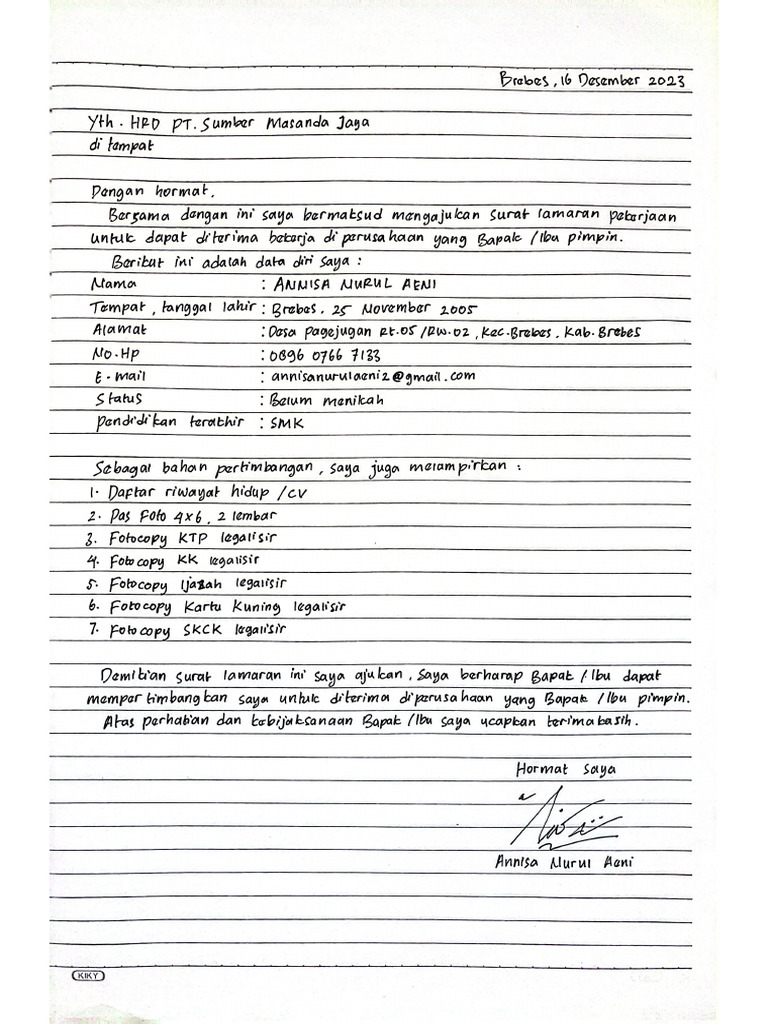 Brebes, 16 Desember 2023
Yth. HRD PT. Sumber Masanda Jaya
di tempat
Dengan hormat,
Bersama dengan ini saya bermaksud mengajukan surat lamaran pekerjaan
untuk dapat diterima bekerja diperusahaan yang Bapak /Ibu pimpin.
Berikut ini adalah data diri saya :
Nama : ANNISA NURUL AENI
Tempat, tanggal lahir : Brebes, 25 November 2005
Alamat : Desa pagejugan Rt.05 /RW.02, Kec.Brebes, Kab.Brebes
No.Hp : 0896 0766 7133
E-mail : annisanurulaeni2@gmail.com
Status : Belum menikah
pendidikan terakhir : SMK
Sebagai bahan pertimbangan, saya juga melampirkan :
1. Daftar riwayat hidup /CV
2. Pas Foto 4x6, 2 lembar
3. Fotocopy KTP legalisir
4. Fotocopy KK legalisir
5. Fotocopy Ijazah legalisir
6. Fotocopy Kartu Kuning legalisir
7. Fotocopy SKCK legalisir
Demikian surat lamaran ini saya ajukan, saya berharap Bapak /Ibu dapat
mempertimbangkan saya untuk diterima diperusahaan yang Bapak /Ibu pimpin.
Atas perhatian dan kebijaksanaan Bapak /Ibu saya ucapkan terimakasih.
Hormat saya
Annisa Nurul Aeni
KIKY